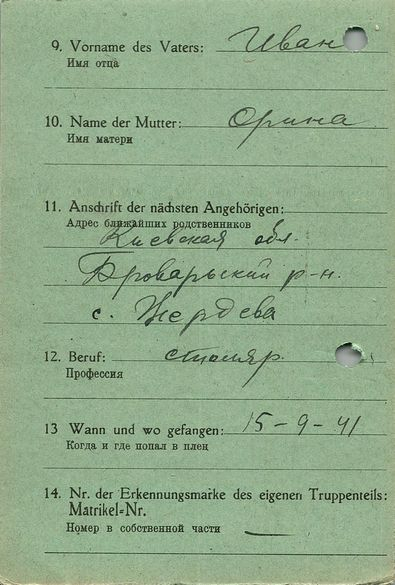 9. Vorname des Vaters: Иван
Имя отца
10. Name der Mutter: Орина
Имя матери
11. Anschrift der nächsten Angehörigen:
Адрес ближайших родственников
Киевская обл.
Броварьский р-н.
с. Жердева
12. Beruf: столяр.
Профессия
13 Wann und wo gefangen: 15-9-41
Когда и где попал в плен
14. Nr. der Erkennungsmarke des eigenen Truppenteils:
Matrikel-Nr.
Номер в собственной части —